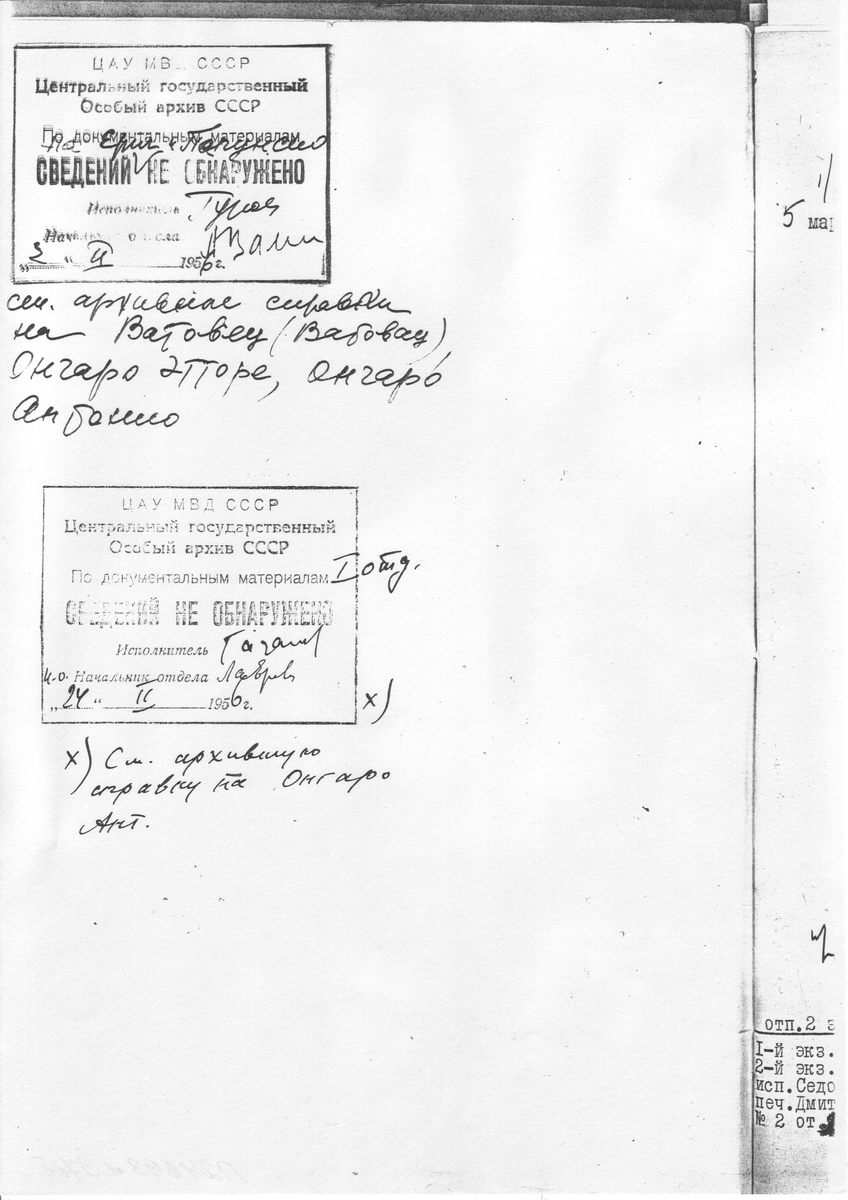 ЦАУ МВД СССР
Центральный государственный
Особый архив СССР
По документальным материалам
на
СВЕДЕНИЙ НЕ ОБНАРУЖЕНО
Исполнитель
Начальник отдела
„2 “ II 1956 г.
см. архивные справки
на Ватовец (Ватовац),
Онгаро Этторе, Онгаро
Антонио
ЦАУ МВД СССР
Центральный государственный
Особый архив СССР
По документальным материалам I отд.
СВЕДЕНИЙ НЕ ОБНАРУЖЕНО
Исполнитель
и.о. Начальник отдела
„24 “ II 1956 г. х)
х) См. архивную
справку на Онгаро
Ант.
5 мар
отп.2 э
I-й экз.
2-й экз.
исп.Седо
печ.Дмит
№ 2 от